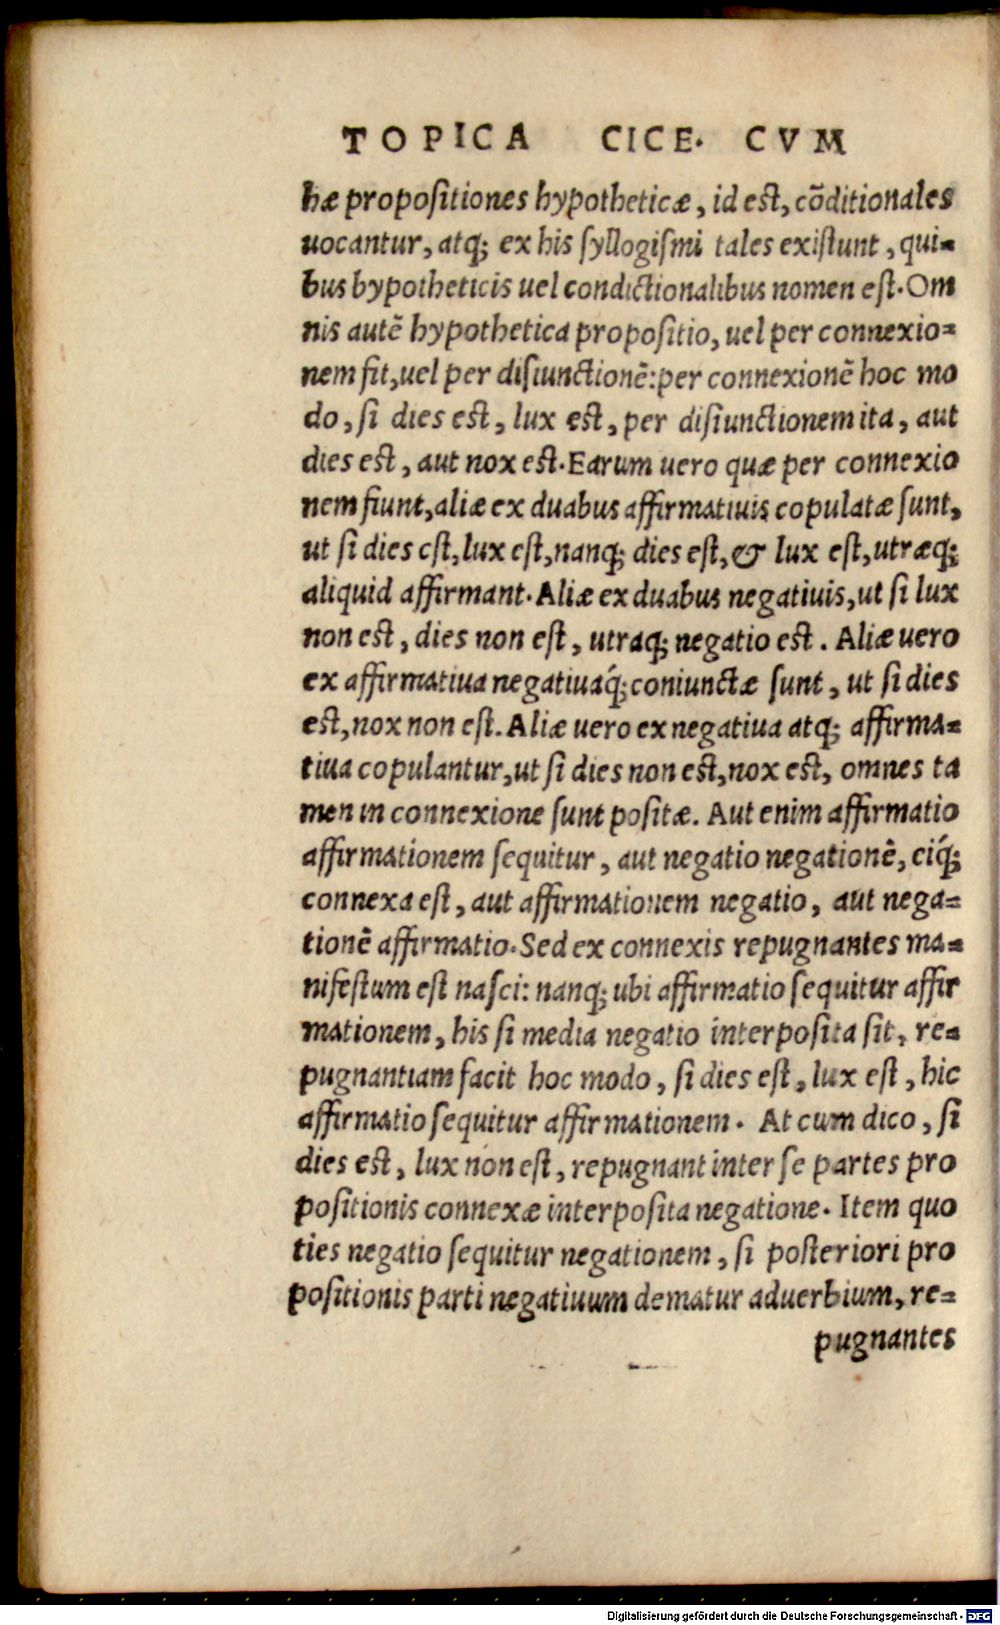 TOPICA CICE. CVM
hæ propositiones hypotheticæ, id est, cõditionales
uocantur, atq; ex his syllogismi tales existunt, qui=
bus hypotheticis uel condictionalibus nomen est. Om
nis autẽ hypothetica propositio, uel per connexio=
nem fit, uel per disiunctionẽ: per connexionẽ hoc mo
do, si dies est, lux est, per disiunctionem ita, aut
dies est, aut nox est. Earum uero quæ per connexio
nem fiunt, aliæ ex duabus affirmatiuis copulatæ sunt,
ut si dies est, lux est, nanq; dies est, & lux est, utræq;
aliquid affirmant. Aliæ ex duabus negatiuis, ut si lux
non est, dies non est, utraq; negatio est. Aliæ uero
ex affirmatiua negatiuaq́; coniunctæ sunt, ut si dies
est, nox non est. Aliæ uero ex negatiua atq; affirma=
tiua copulantur, ut si dies non est, nox est, omnes ta
men in connexione sunt positæ. Aut enim affirmatio
affirmationem sequitur, aut negatio negationẽ, eiq́;
connexa est, aut affirmationem negatio, aut nega=
tionẽ affirmatio. Sed ex connexis repugnantes ma=
nifestum est nasci: nanq; ubi affirmatio sequitur affir
mationem, his si media negatio interposita sit, re=
pugnantiam facit hoc modo, si dies est, lux est, hic
affirmatio sequitur affirmationem. At cum dico, si
dies est, lux non est, repugnant inter se partes pro
positionis connexæ interposita negatione. Item quo
ties negatio sequitur negationem, si posteriori pro
positionis parti negatiuum dematur aduerbium, re=
pugnantes
Digitalisierung gefördert durch die Deutsche Forschungsgemeinschaft - DFG